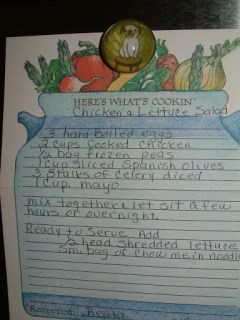 HERE'S WHAT'S COOKIN'
Chicken & Lettuce Salad
3 hard boiled eggs
2 cups Cooked Chicken
1/2 bag frozen peas
1 cup sliced Spanish olives
3 Stalks of Celery diced
1 Cup. mayo
mix together & let sit a few
hours or overnight.
Ready to Serve Add
1/2 head shredded lettuce
Sm. bag of Chow mein noodle